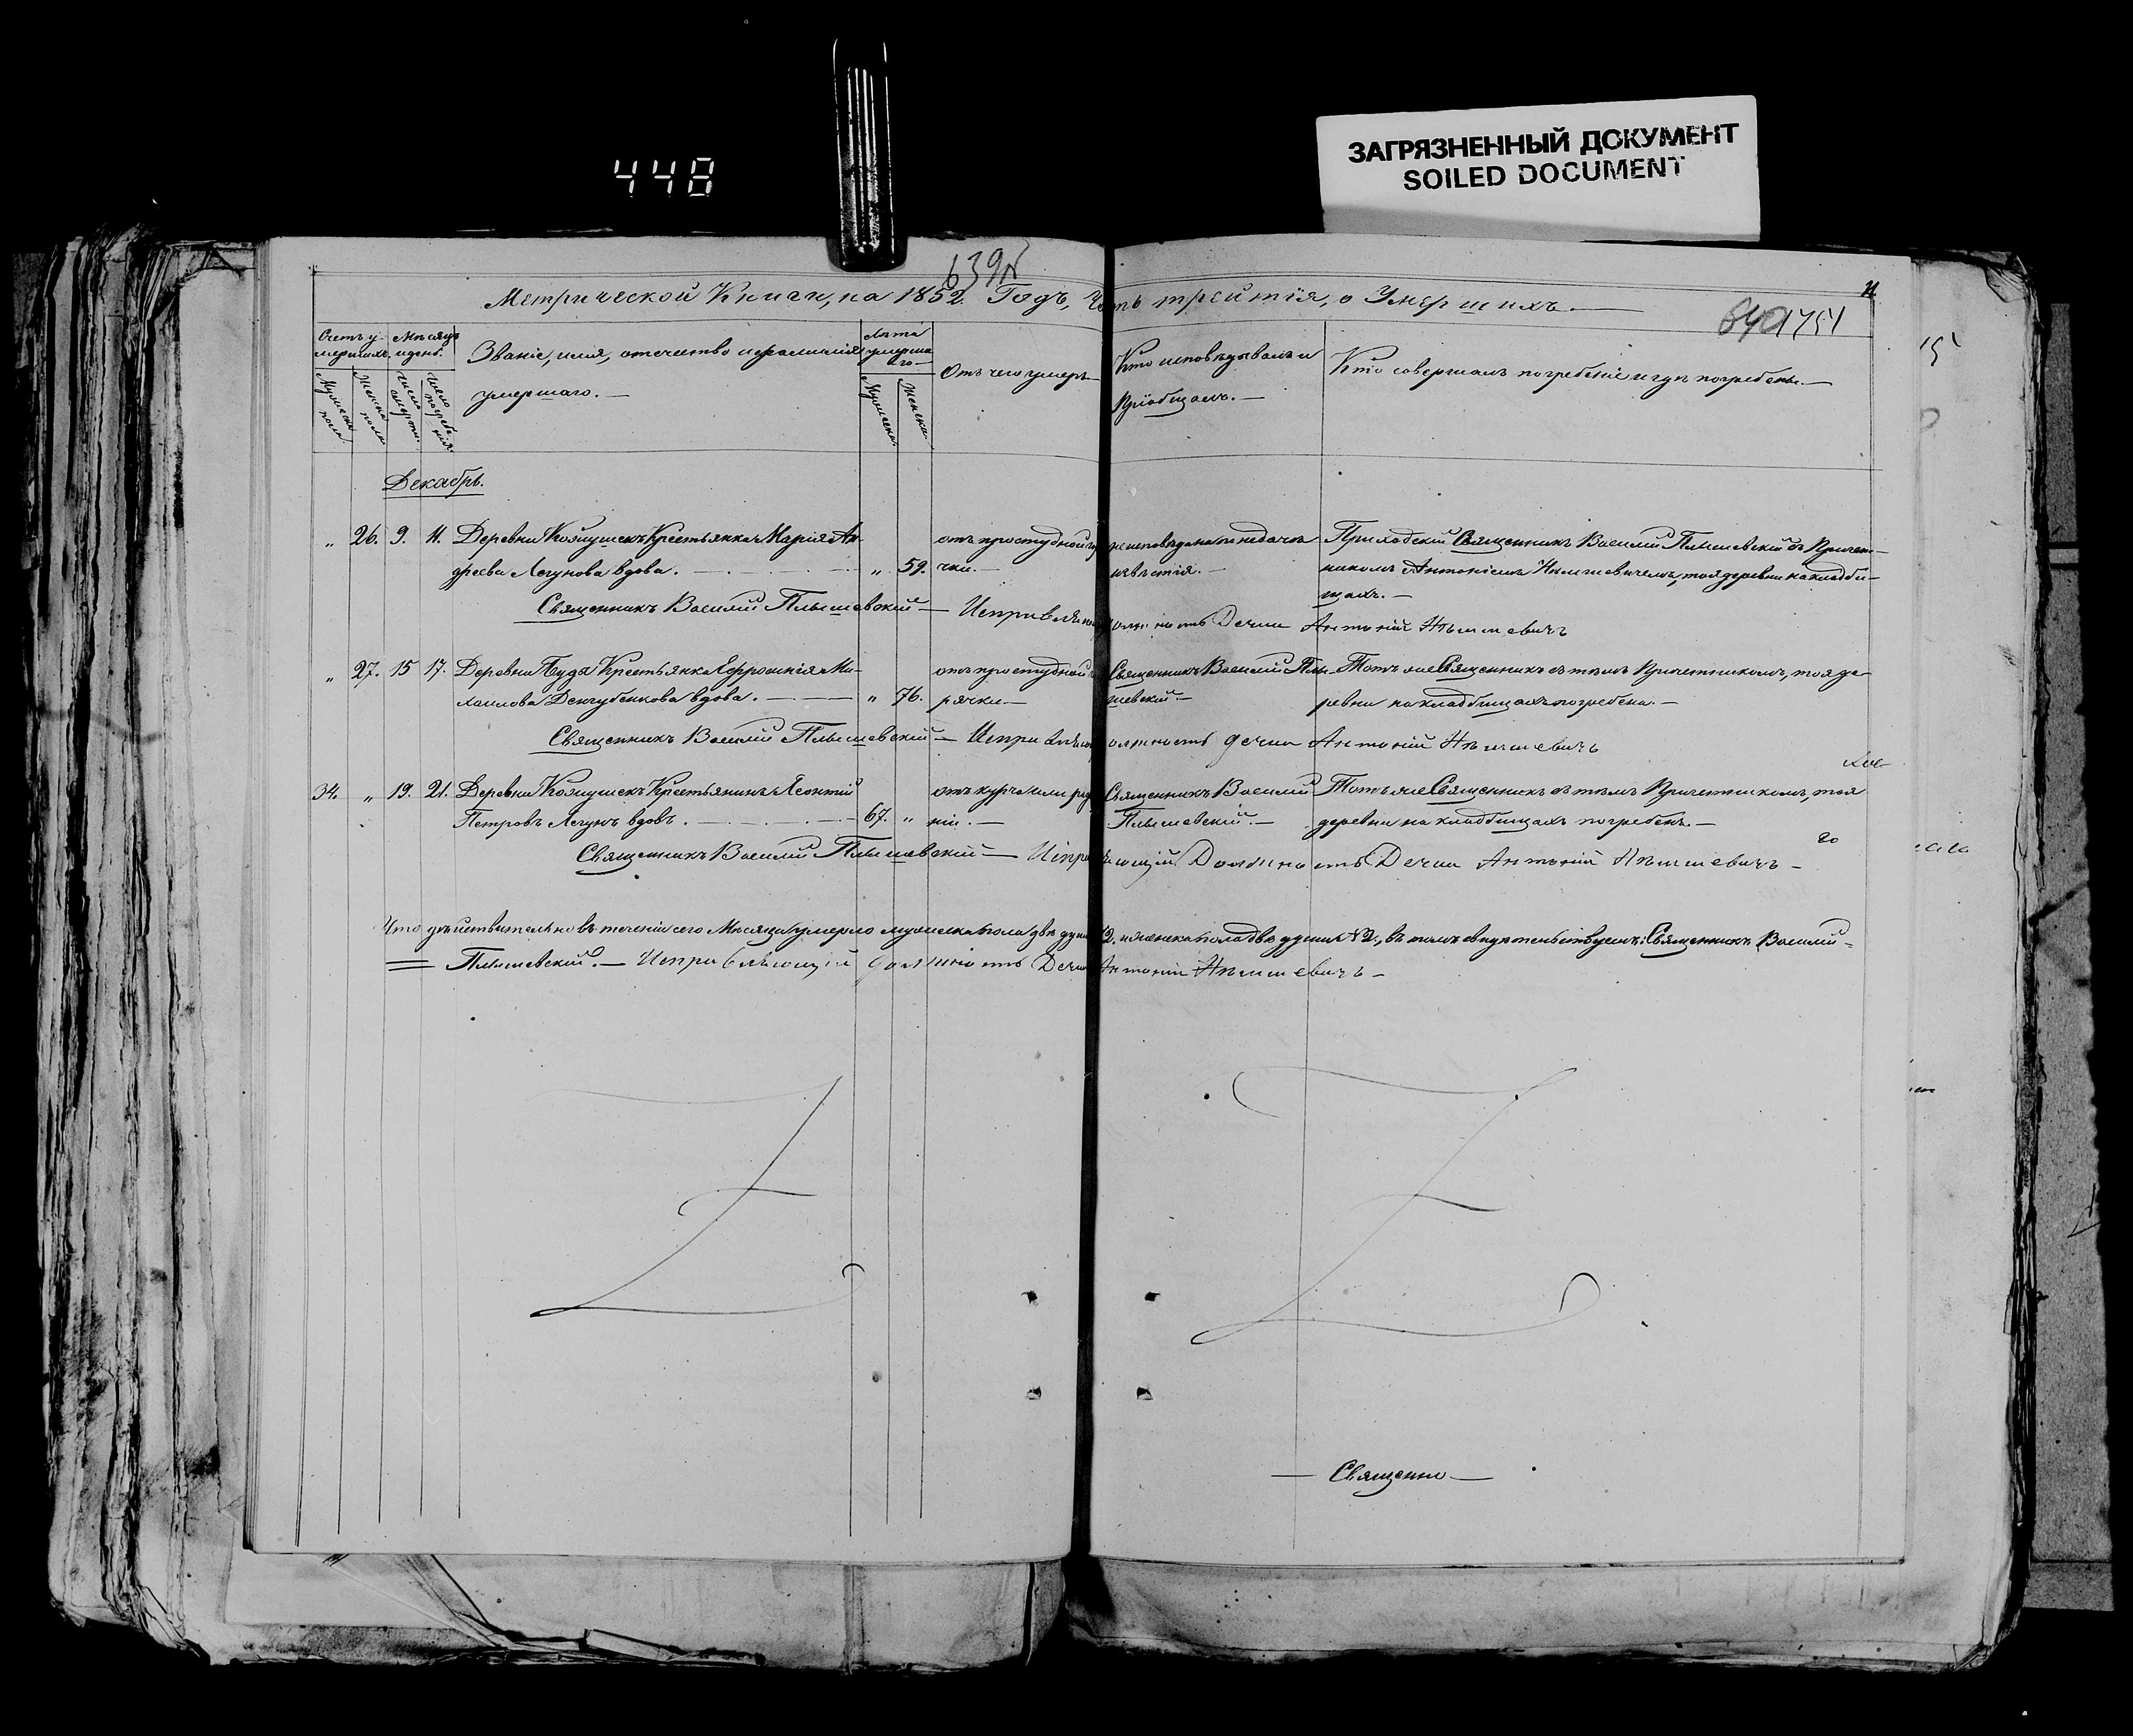 448
ЗАГРЯЗНЕННЫЙ ДОКУМЕНТ
SOILED DOCUMENT
639
Метрической Книги, на 1852. Годъ, Часть третїя, о Умершихъ.—
640 751
Счетъ у-
мершихъ.
Мѣсяцъ
и день.
Мужеска
пола.
Женска
пола.
Число
смерти.
Число
погребе-
нія.
Званіе, имя, отечество и фамилія
умершаго.—
Лѣта
умерша
го—
Мужеска.
Женска.
Отъ чего умеръ—
Кто исповѣдывалъ и
Пріобщалъ.—
Кто совершалъ погребеніе и гдѣ погребены.—
Декабрь.
„ 26. 9. 11. Деревни Крестьянка Марія Ан-
дреева Легунова вдова. „ 59.
отъ простудной горя
чки.—
не исповѣдана по недачи
извѣстія.—
Приходскій Священникъ Василій Плышевскій съ Причет-
никомъ Антоніемъ, тоя деревни на кладби-
щахъ.—
Священникъ Василій Плышевскій— Исправляющ олжность Дечка Антоній
„ 27. 15 17. Деревни Крестьянка Ефросинія Ми-
хаилова вдова.— „ 76.
отъ простудной го
рячки—
Священникъ Василій Плы-
шевскій—
Тотъ же Священникъ съ тѣмъ Причетникомъ, тоя де
ревни на кладбищахъ погребена.—
Священникъ Василій Плышевскій— Исправляющ олжность дечка Антоній
34. „ 19. 21. Деревни Крестьянинъ Леонтій
Петровъ Легунъ вдовъ. 67. „
отъ
ніи.—
Священникъ Василій
Плышевскій.—
Тотъ же Священникъ съ тѣмъ Причетникомъ, тоя
деревни на кладбищахъ погребенъ.—
Священникъ Василій Плышевскій— Исправляющій Должность Дечка Антоній
Что дѣйствительно въ теченіи сего Мѣсяца умерло мужеска пола двѣ души 2. и женска пола двѣ души №2., въ томъ свидѣтельствуемъ: Священникъ Василій
Плышевскій.— Исправляющій должность Дечка Антоній
— Священно—